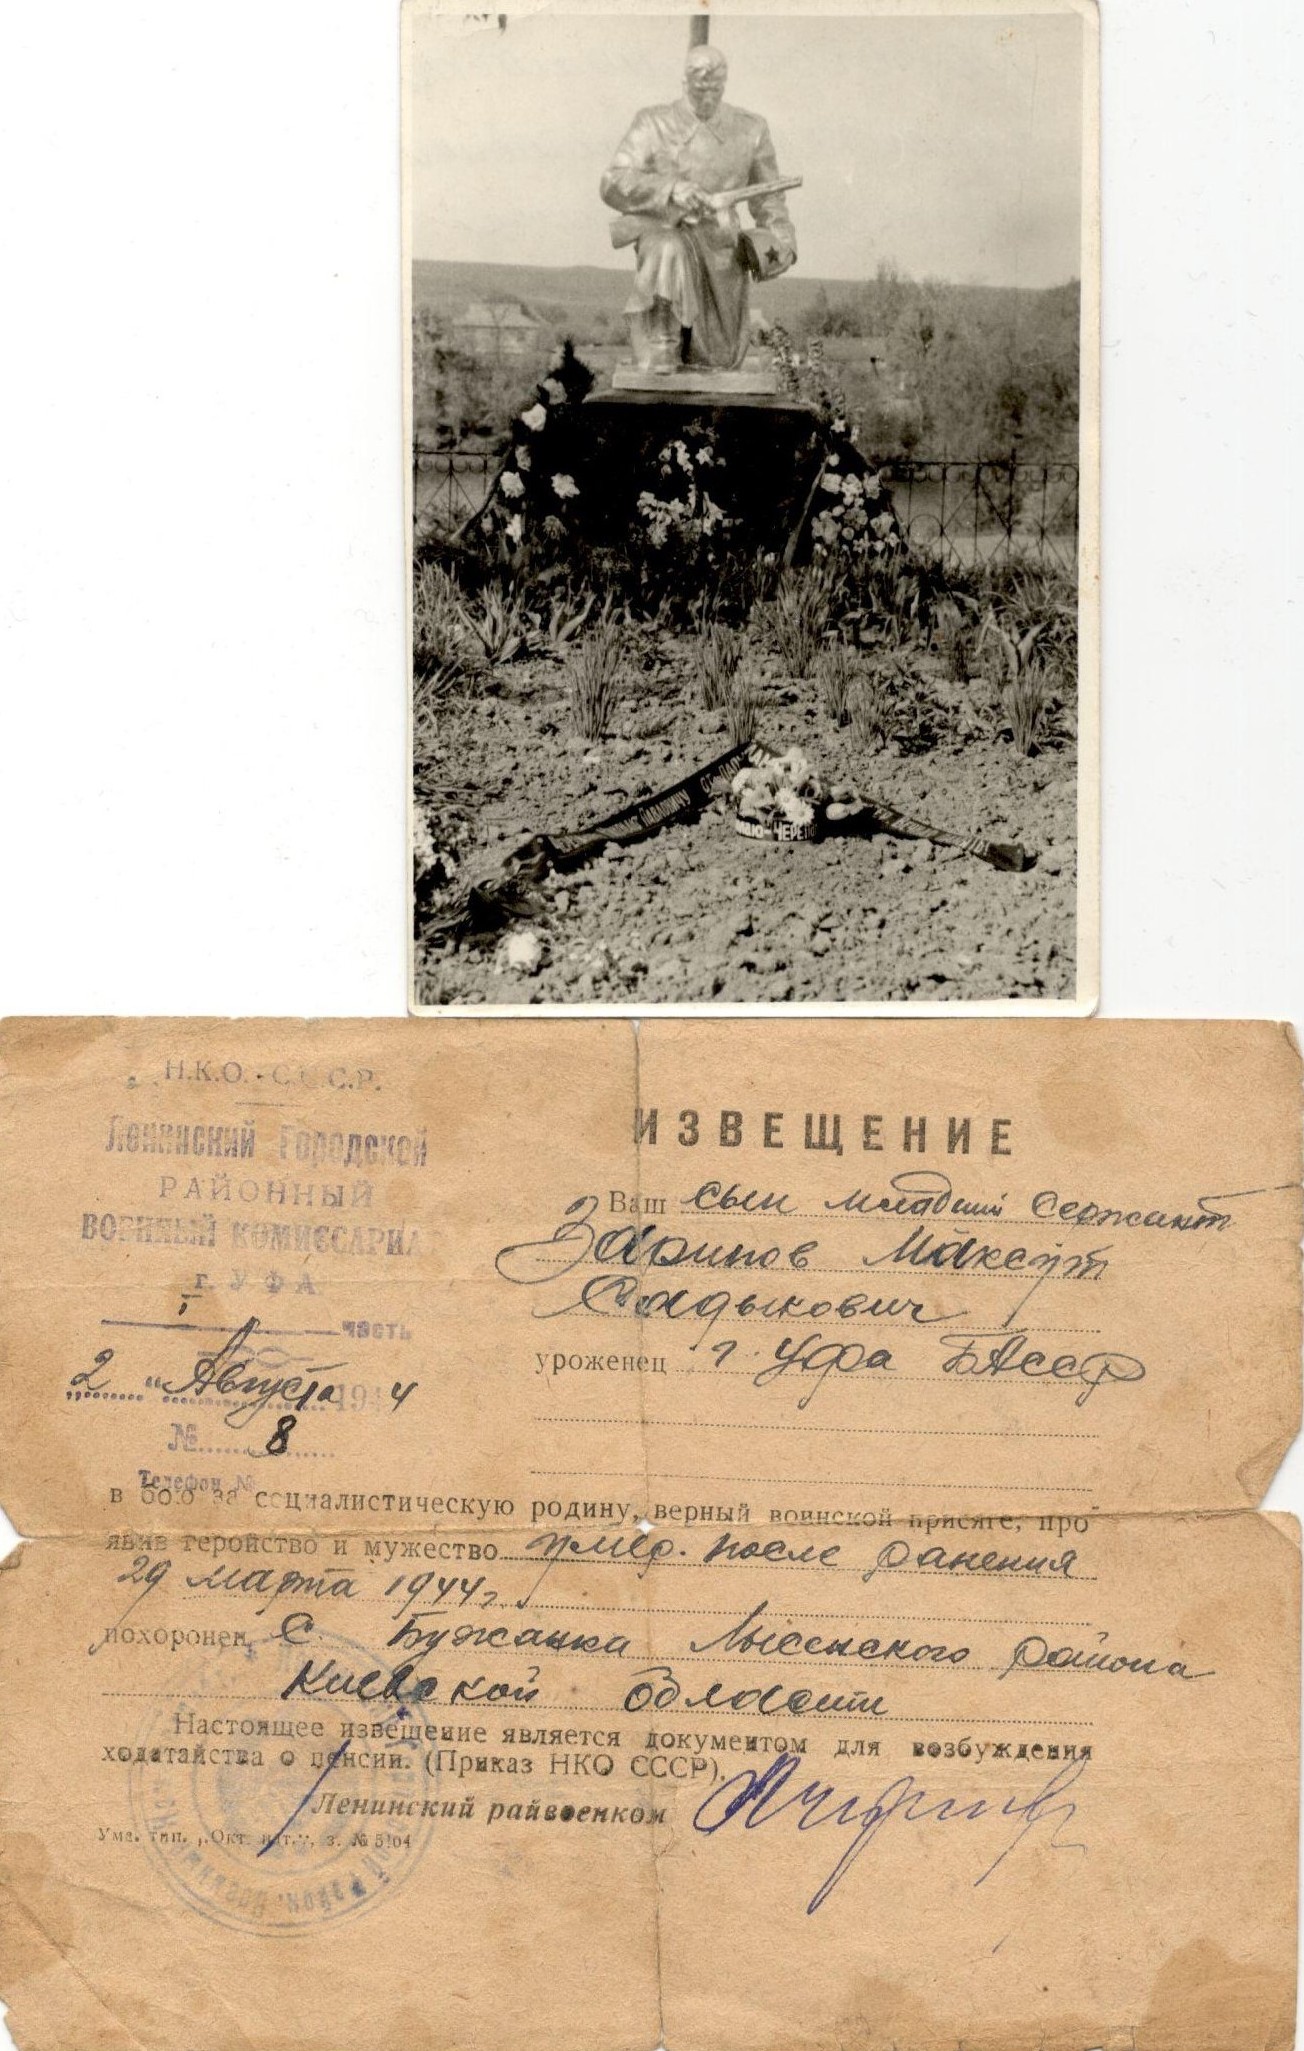 ПАВЛОВИЧУ
Н.К.О. - С.С.С.Р.
Ленинский Городской
РАЙОННЫЙ
ВОЕННЫЙ КОМИССАРИА
г. УФА
I часть
2 " Августа 1944
№ 8
Телефон №
ИЗВЕЩЕНИЕ
Ваш сын младший сержант
Зарипов Максут
Садыкович
уроженец г. Уфа БАССР
в бою за социалистическую родину, верный воинской присяге, про
явив геройство и мужество умер. после ранения
29 марта 1944 г.
похоронен С. Бужанка Лысенского района
Киевской области
Настоящее извещение является документом для возбуждения
ходатайства о пенсии. (Приказ НКО СССР).
Ленинский райвоенком
тип. з. № 5104